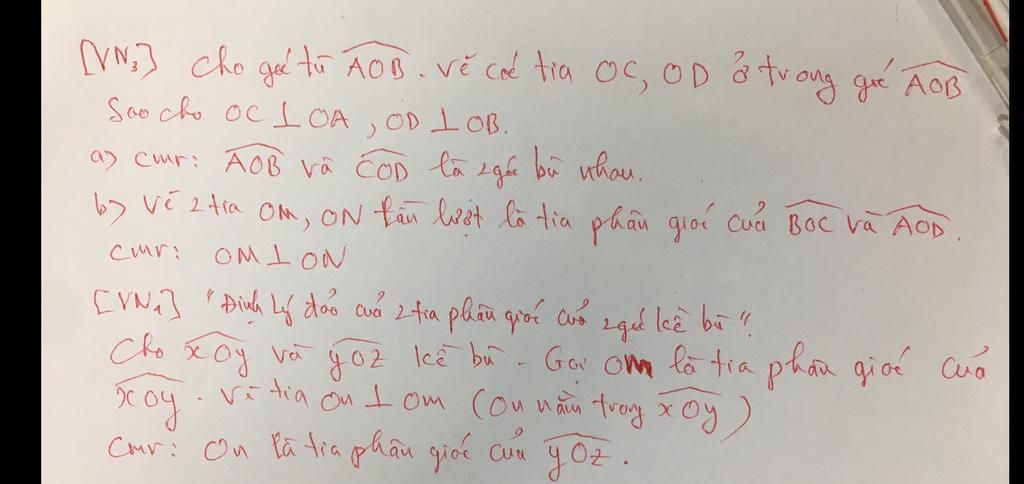 [VN₃] Cho góc tù AOB. Vẽ các tia OC, OD ở trong góc AOB
Sao cho OC⊥OA, OD⊥OB.
a) cmr: AOB và COD là 2 góc bù nhau.
b) Vẽ 2 tia OM, ON lần lượt là tia phân giác của BOC và AOD.
Cmr: OM⊥ON
[VN₄] "Định lý đảo của 2 tia phân giác của 2 góc kề bù".
Cho xOy và yOz kề bù. Gọi Om là tia phân giác của
xOy. Vẽ tia On⊥Om (On nằm trong xOy)
Cmr: On là tia phân giác của yOz.